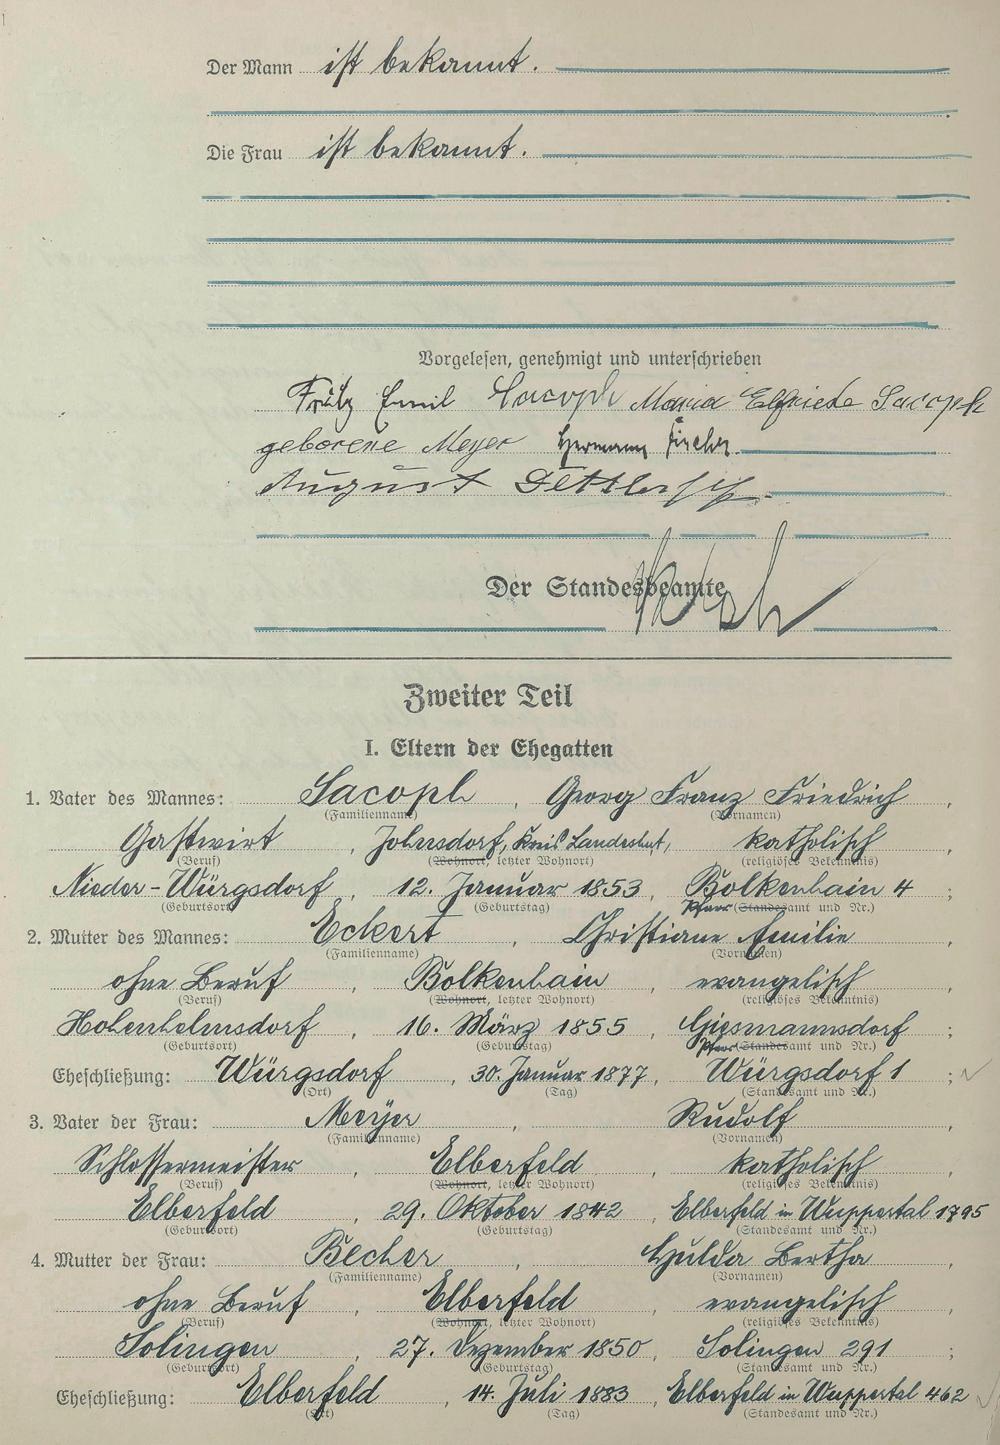 Der Mann ist bekannt.
Die Frau ist bekannt.
Vorgelesen, genehmigt und unterschrieben
Fritz Emil Sacoph Maria Elfriede Sacoph
geborene Meyer Hermann Fischer.
August
Der Standesbeamte
Zweiter Teil
I. Eltern der Ehegatten
1. Vater des Mannes: Sacoph, Georg Franz Friedrich,
(Familienname) (Vornamen)
Gastwirt, Johnsdorf, Kreis Landeshut, katholisch
(Beruf) (Wohnort, letzter Wohnort) (religiöses Bekenntnis)
Nieder-Würgsdorf, 12. Januar 1853, Bolkenhain 4;
(Geburtsort) (Geburtstag) Pfarr (Standesamt und Nr.)
2. Mutter des Mannes: Eckert, Christiane Emilie,
(Familienname) (Vornamen)
ohne Beruf, Bolkenhain, evangelisch
(Beruf) (Wohnort, letzter Wohnort) (religiöses Bekenntnis)
Hohenhelmsdorf, 16. März 1855, Giesmannsdorf;
(Geburtsort) (Geburtstag) Pfarr (Standesamt und Nr.)
Eheschließung: Würgsdorf, 30. Januar 1877, Würgsdorf 1;
(Ort) (Tag) (Standesamt und Nr.)
3. Vater der Frau: Meyer, Rudolf,
(Familienname) (Vornamen)
Schlossermeister, Elberfeld, katholisch
(Beruf) (Wohnort, letzter Wohnort) (religiöses Bekenntnis)
Elberfeld, 29. Oktober 1842, Elberfeld in Wuppertal 1795
(Geburtsort) (Geburtstag) (Standesamt und Nr.)
4. Mutter der Frau: Becher, Hulda Bertha,
(Familienname) (Vornamen)
ohne Beruf, Elberfeld, evangelisch
(Beruf) (Wohnort, letzter Wohnort) (religiöses Bekenntnis)
Solingen, 27. Dezember 1850, Solingen 291;
(Geburtsort) (Geburtstag) (Standesamt und Nr.)
Eheschließung: Elberfeld, 14. Juli 1883, Elberfeld in Wuppertal 462
(Ort) (Tag) (Standesamt und Nr.)